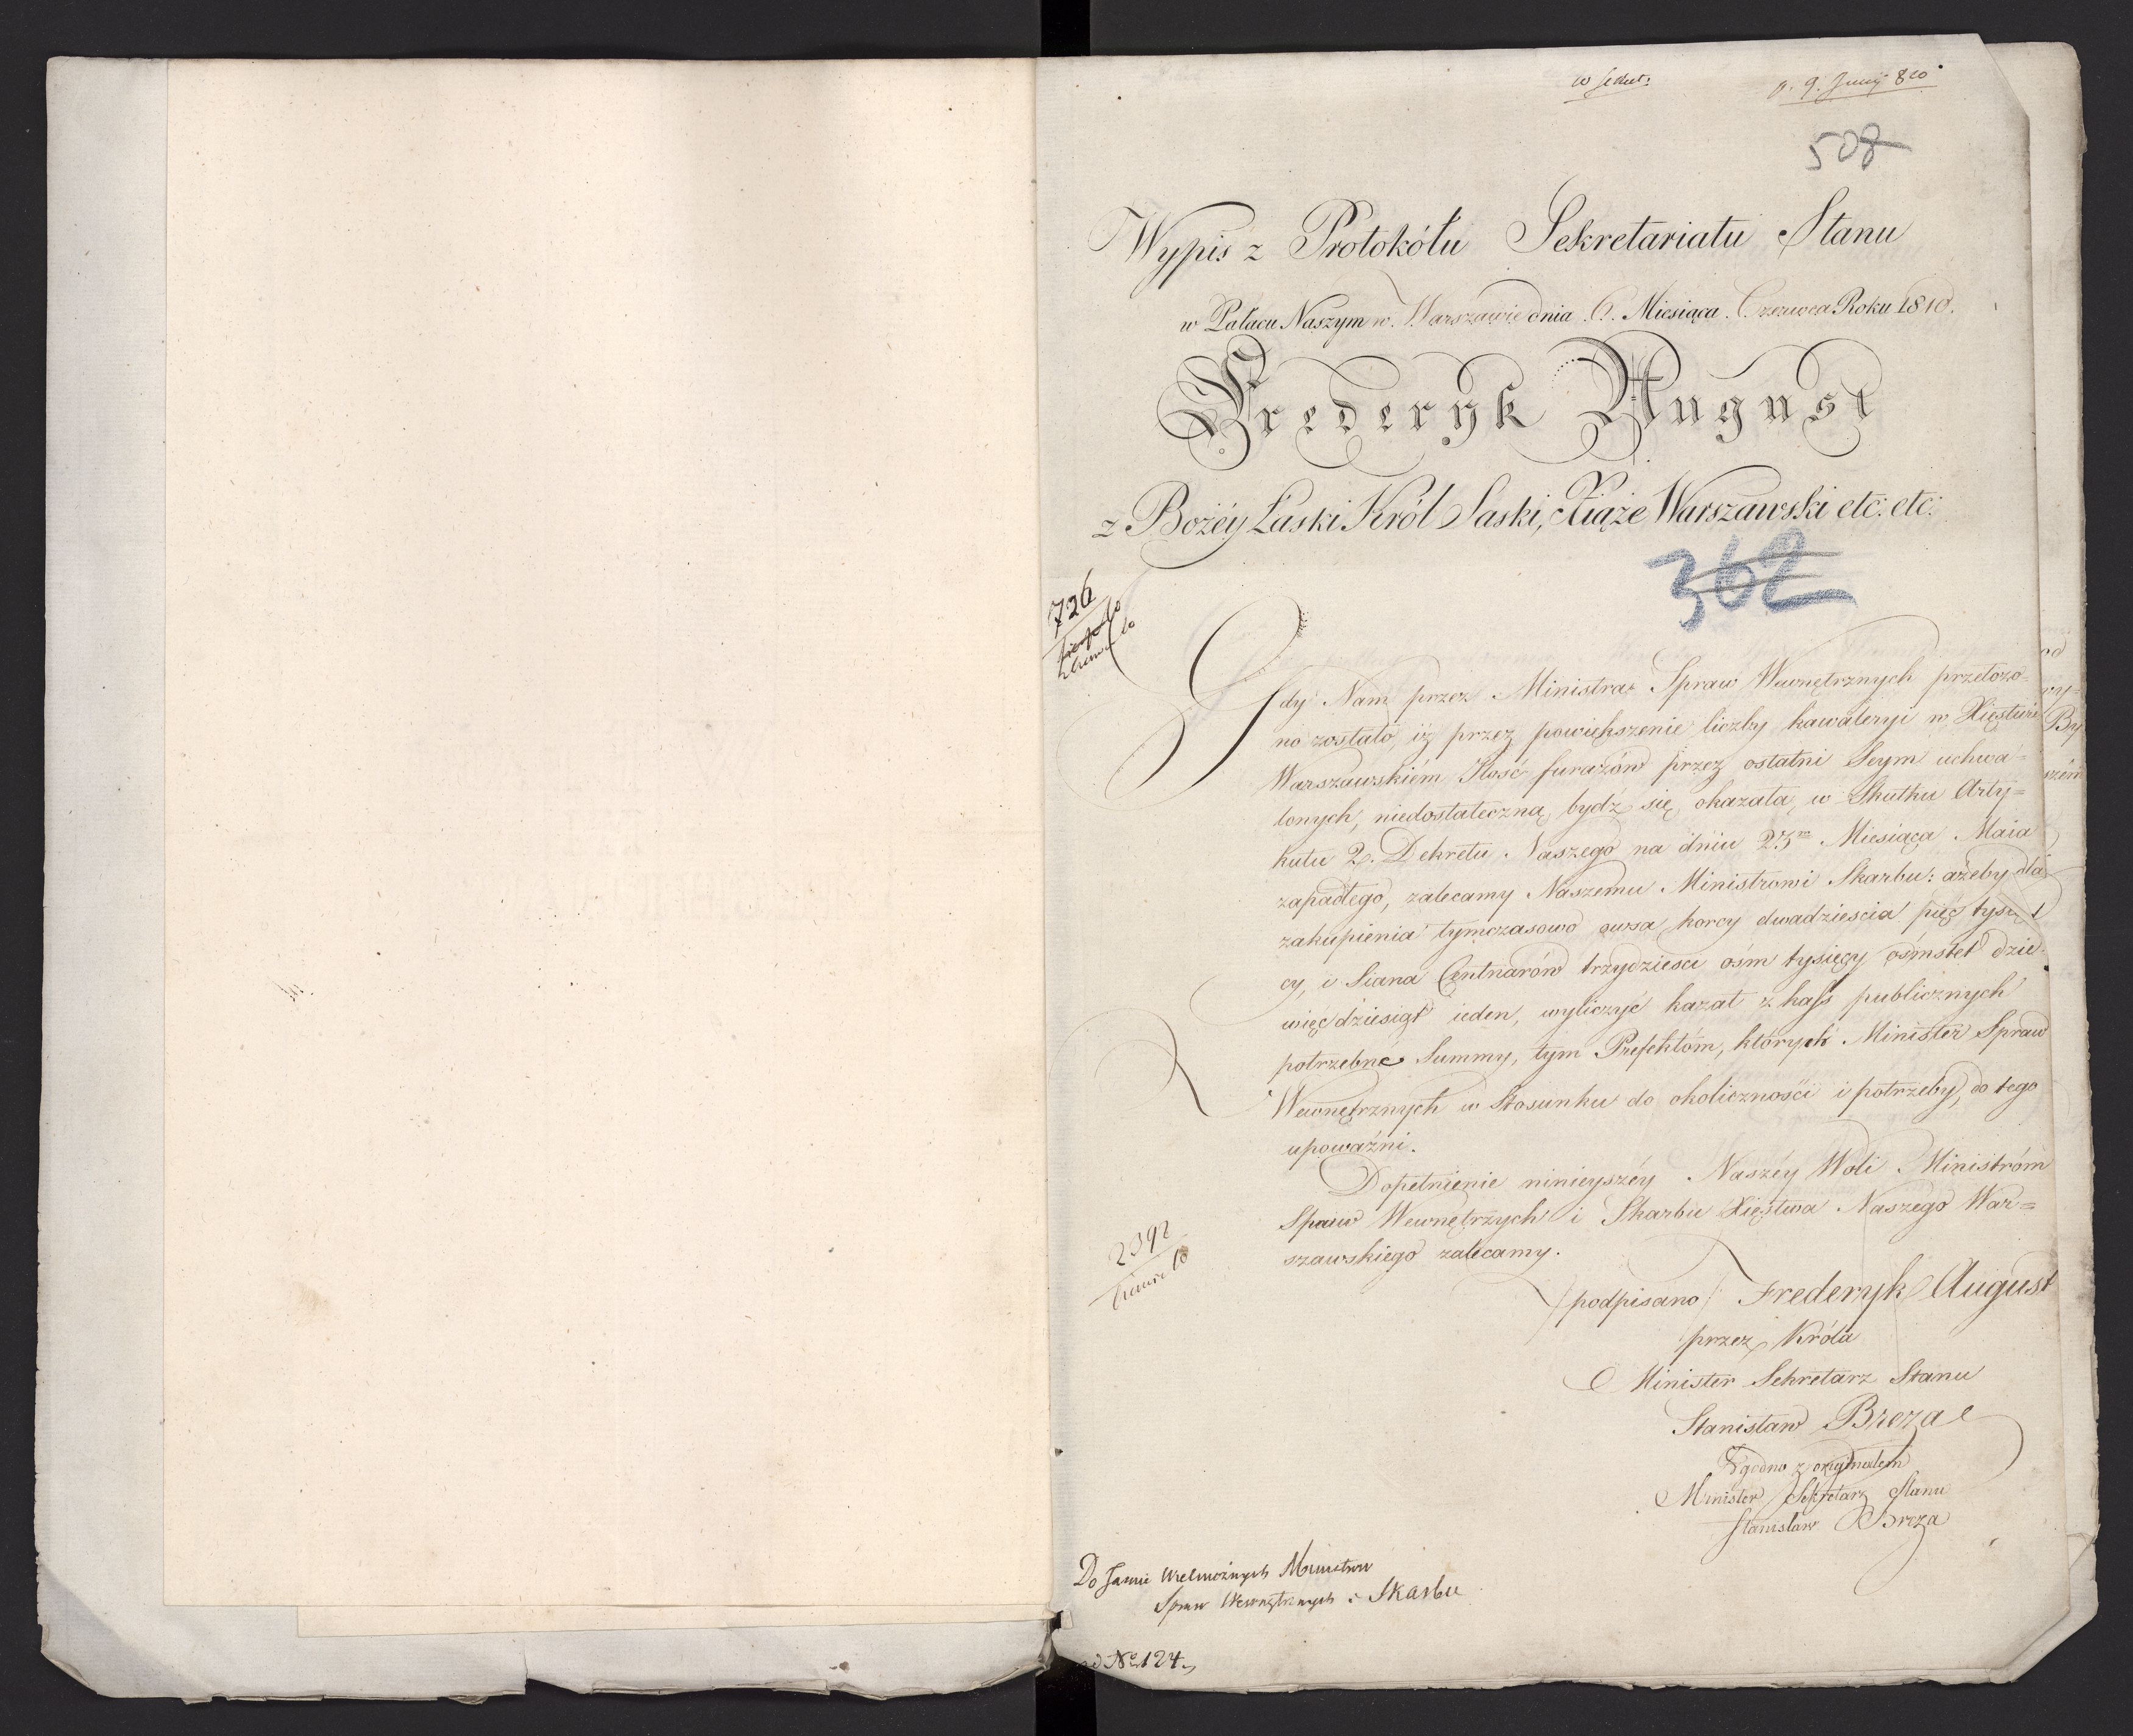 p. 9. Junij 810
508
Wypis z Protokółu Sekretariatu Stanu
w Pałacu Naszym w Warszawie dnia 6. Miesiąca Czerwca Roku 1810.
Frederyk August
z Bożéy Łaski Król Saski, Xiąże Warszawski etc: etc:
362
726
Gdy Nam przez Ministra Spraw Wewnętrznych przełożo-
no zostało, iż przez powiększenie liczby kawaleryi w Xięstwie
Warszawskiém Ilość furażów przez ostatni Seym uchwa-
lonych, niedostateczną bydź się okazała, w Skutku Arty=
kułu 2. Dekretu Naszego na dniu 23m Miesiąca Maia
zapadłego, zalecamy Naszemu Ministrowi Skarbu: ażeby dla
zakupienia tymczasowo owsa korcy dwadzieścia pięć tysię
cy, i Siana Centnarów trzydzieści ośm tysięcy ośmset dzie-
więćdziesiąt ieden, wyliczyć kazał z kass publicznych
potrzebne Summy, tym Prefektóm, których Minister Spraw
Wewnętrznych w Stosunku do okoliczności i potrzeby, do tego
upoważni.
Dopełnienie ninieyszéy Naszéy Woli Ministróm
Spraw Wewnętrzych i Skarbu Xięstwa Naszego War=
szawskiego zalecamy.
/podpisano/ Frederyk August
przez Króla
Minister Sekretarz Stanu
Stanisław Breza
Zgodno z originałem
Minister Sekretarz Stanu
Stanisław Breza
2392
Do Jaśnie Wielmożnych Ministrów
Spraw Wewnętrznych i Skarbu
ad No 124.